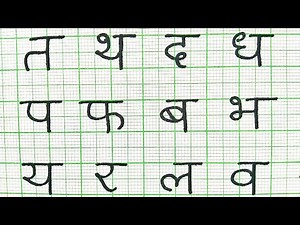 त थ द ध
प फ ब भ
य र ल व